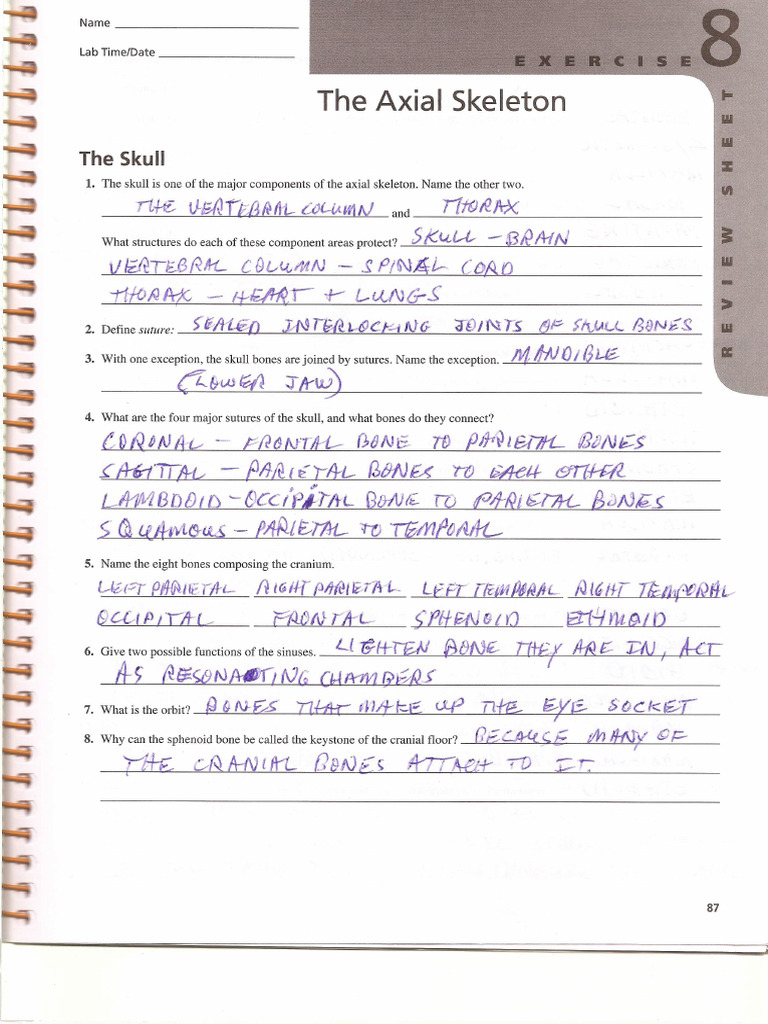 Name
Lab Time/Date
EXERCISE 8
REVIEW SHEET
The Axial Skeleton
The Skull
1. The skull is one of the major components of the axial skeleton. Name the other two.
THE VERTEBRAL COLUMN and THORAX
What structures do each of these component areas protect? SKULL – BRAIN
VERTEBRAL COLUMN – SPINAL CORD
THORAX – HEART + LUNGS
2. Define suture: SEALED INTERLOCKING JOINTS OF SKULL BONES
3. With one exception, the skull bones are joined by sutures. Name the exception. MANDIBLE
(LOWER JAW)
4. What are the four major sutures of the skull, and what bones do they connect?
CORONAL – FRONTAL BONE TO PARIETAL BONES
SAGITTAL – PARIETAL BONES TO EACH OTHER
LAMBDOID – OCCIPITAL BONE TO PARIETAL BONES
SQUAMOUS – PARIETAL TO TEMPORAL
5. Name the eight bones composing the cranium.
LEFT PARIETAL RIGHT PARIETAL LEFT TEMPORAL RIGHT TEMPORAL
OCCIPITAL FRONTAL SPHENOID ETHMOID
6. Give two possible functions of the sinuses. LIGHTEN BONE THEY ARE IN, ACT
AS RESONATING CHAMBERS
7. What is the orbit? BONES THAT MAKE UP THE EYE SOCKET
8. Why can the sphenoid bone be called the keystone of the cranial floor? BECAUSE MANY OF
THE CRANIAL BONES ATTACH TO IT.
87